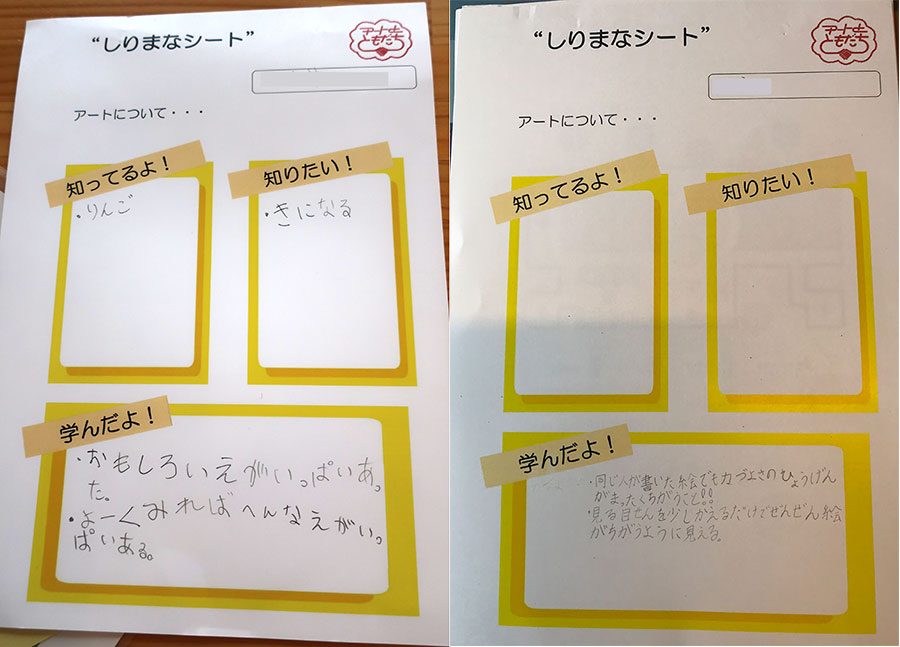 “しりまなシート”
アートと
ともだち
アートについて・・・
知ってるよ！
・りんご
知りたい！
・きになる
学んだよ！
・おもしろいえがいっぱいあっ
た。
・よーくみればへんなえがいっ
ぱいある。
“しりまなシート”
アートと
ともだち
アートについて・・・
知ってるよ！
知りたい！
学んだよ！
・同じ人が書いた絵でも力づよさのひょうげん
がまったくちがうこと!!
・見る目せんを少しかえるだけでぜんぜん絵
がちがうように見える。